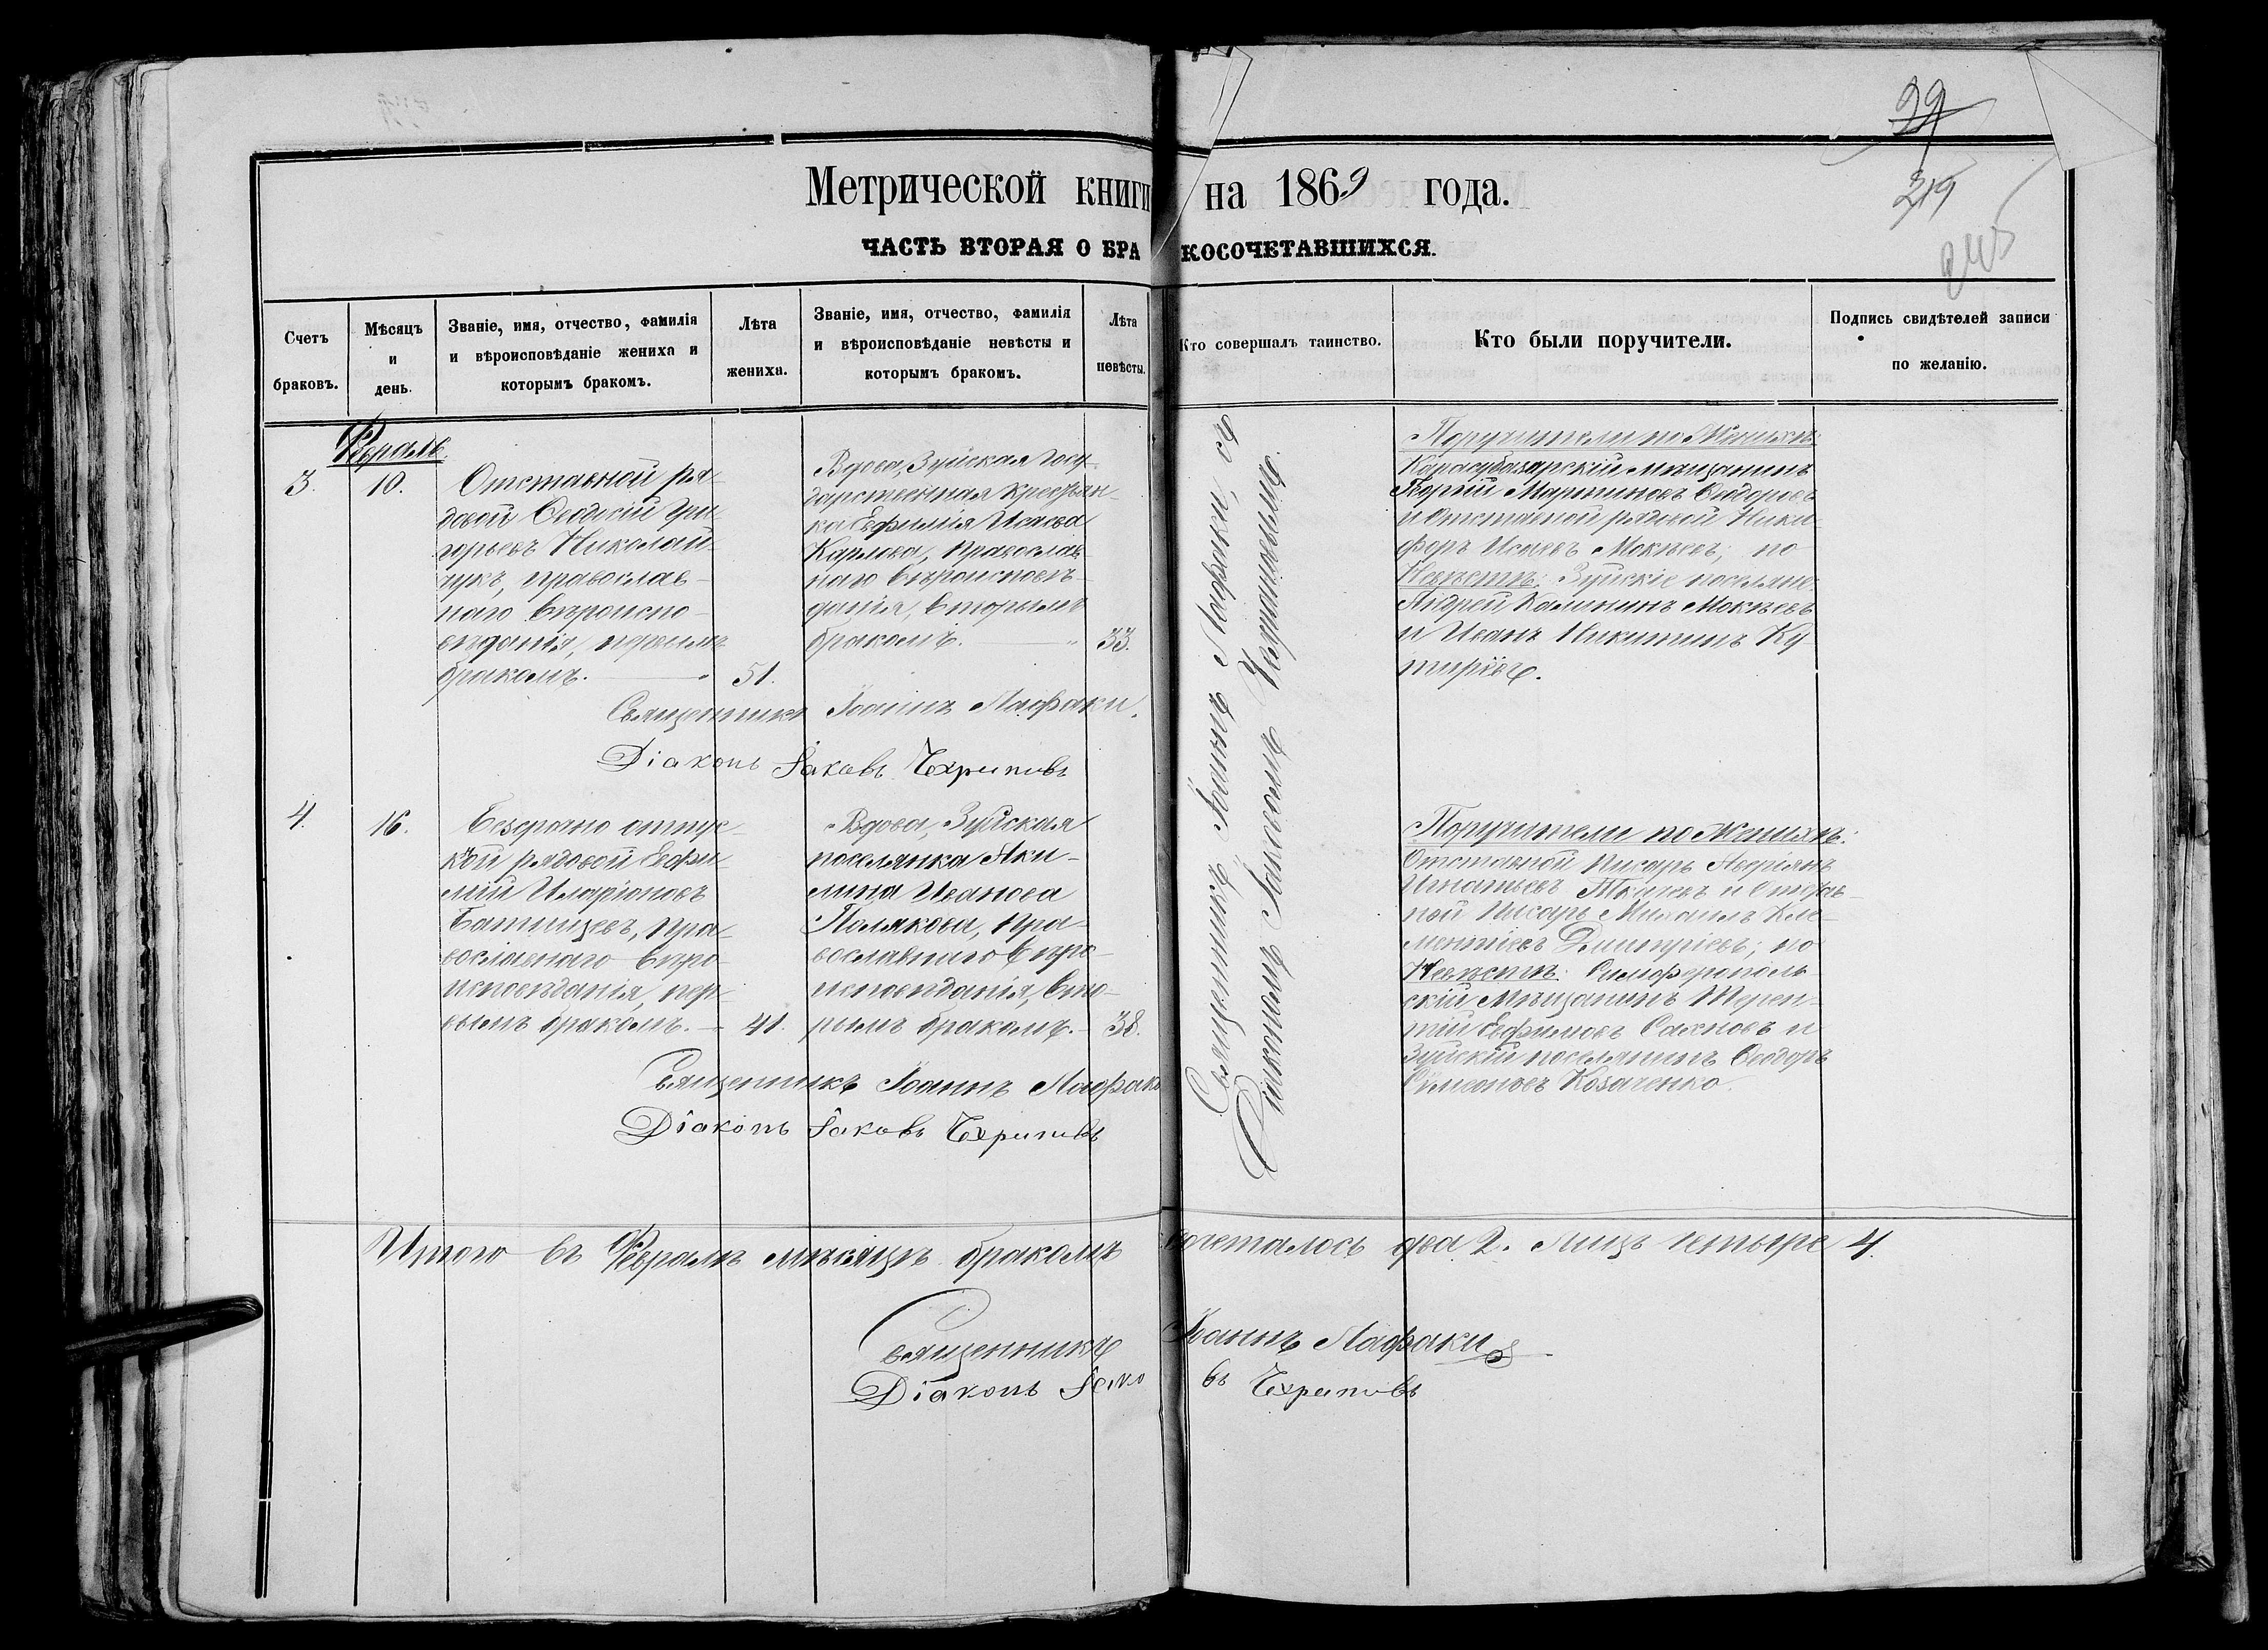 99
219
245
Метрической книги на 1869 года.
ЧАСТЬ ВТОРАЯ О БРАКОСОЧЕТАВШИХСЯ.
Счетъ
браковъ.
Мѣсяцъ
и
день.
Званіе, имя, отчество, фамилія
и вѣроисповѣданіе жениха и
которымъ бракомъ.
Лѣта
жениха.
Званіе, имя, отчество, фамилія
и вѣроисповѣданіе невѣсты и
которымъ бракомъ.
Лѣта
невѣсты.
Кто совершалъ таинство.
Кто были поручители.
Подпись свидѣтелей записи
по желанію.
Февраль.
3.
10.
Отставной ря-
довой Ѳеодосій Гри-
горьевъ Николай-
чукъ, православ-
наго вѣроиспо-
вѣданія, первымъ
бракомъ.
51.
Вдова, Зуйская Госу-
дарственная крестьян-
ка Евфимія Исаева
Карлова, православ-
наго вѣроисповѣ-
данія, вторымъ
бракомъ.
33.
Священникъ Іоаннъ Лафаки, съ
Діакономъ Іаковомъ
Поручители по Женихѣ:
Карасубазарскій мѣщанинъ
Георгій Мартиновъ Сидоровъ
и Отставной рядовой Ники-
форъ Исаевъ Мокѣевъ; по
Невѣстѣ: Зуйскіе поселяне:
Андрей Калининъ Мокѣевъ
и Иванъ Никитинъ Ку-
тирѣвъ.
Священникъ Іоаннъ Лафаки.
Діаконъ Іаковъ
4.
16.
Безсрочно отпус-
кной рядовой Евфи-
мій Иларіоновъ
Батищевъ, пра-
вославнаго вѣро-
исповѣданія, пер-
вымъ бракомъ.
41.
Вдова, Зуйская
поселянка Аки-
лина Иванова
Полякова, пра-
вославнаго вѣро-
исповѣданія, вто-
рымъ бракомъ.
38.
Поручители по Женихѣ:
Отставной писарь Аверіянъ
Игнатьевъ и Отстав-
ной писарь Михаилъ Кле-
ментіевъ Дмитріевъ; по
Невѣстѣ: Симферополь-
скій Мѣщанинъ Терен-
тій Евфимовъ Сахновъ и
Зуйскій поселянинъ Ѳеодоръ
Симеоновъ Козаченко.
Священникъ Іоаннъ Лафаки
Діаконъ Іаковъ
Итого въ Февралѣ мѣсяцѣ бракомъ сочеталось два 2. Лицъ четыре 4.
Священникъ Іоаннъ Лафаки
Діаконъ Іаковъ